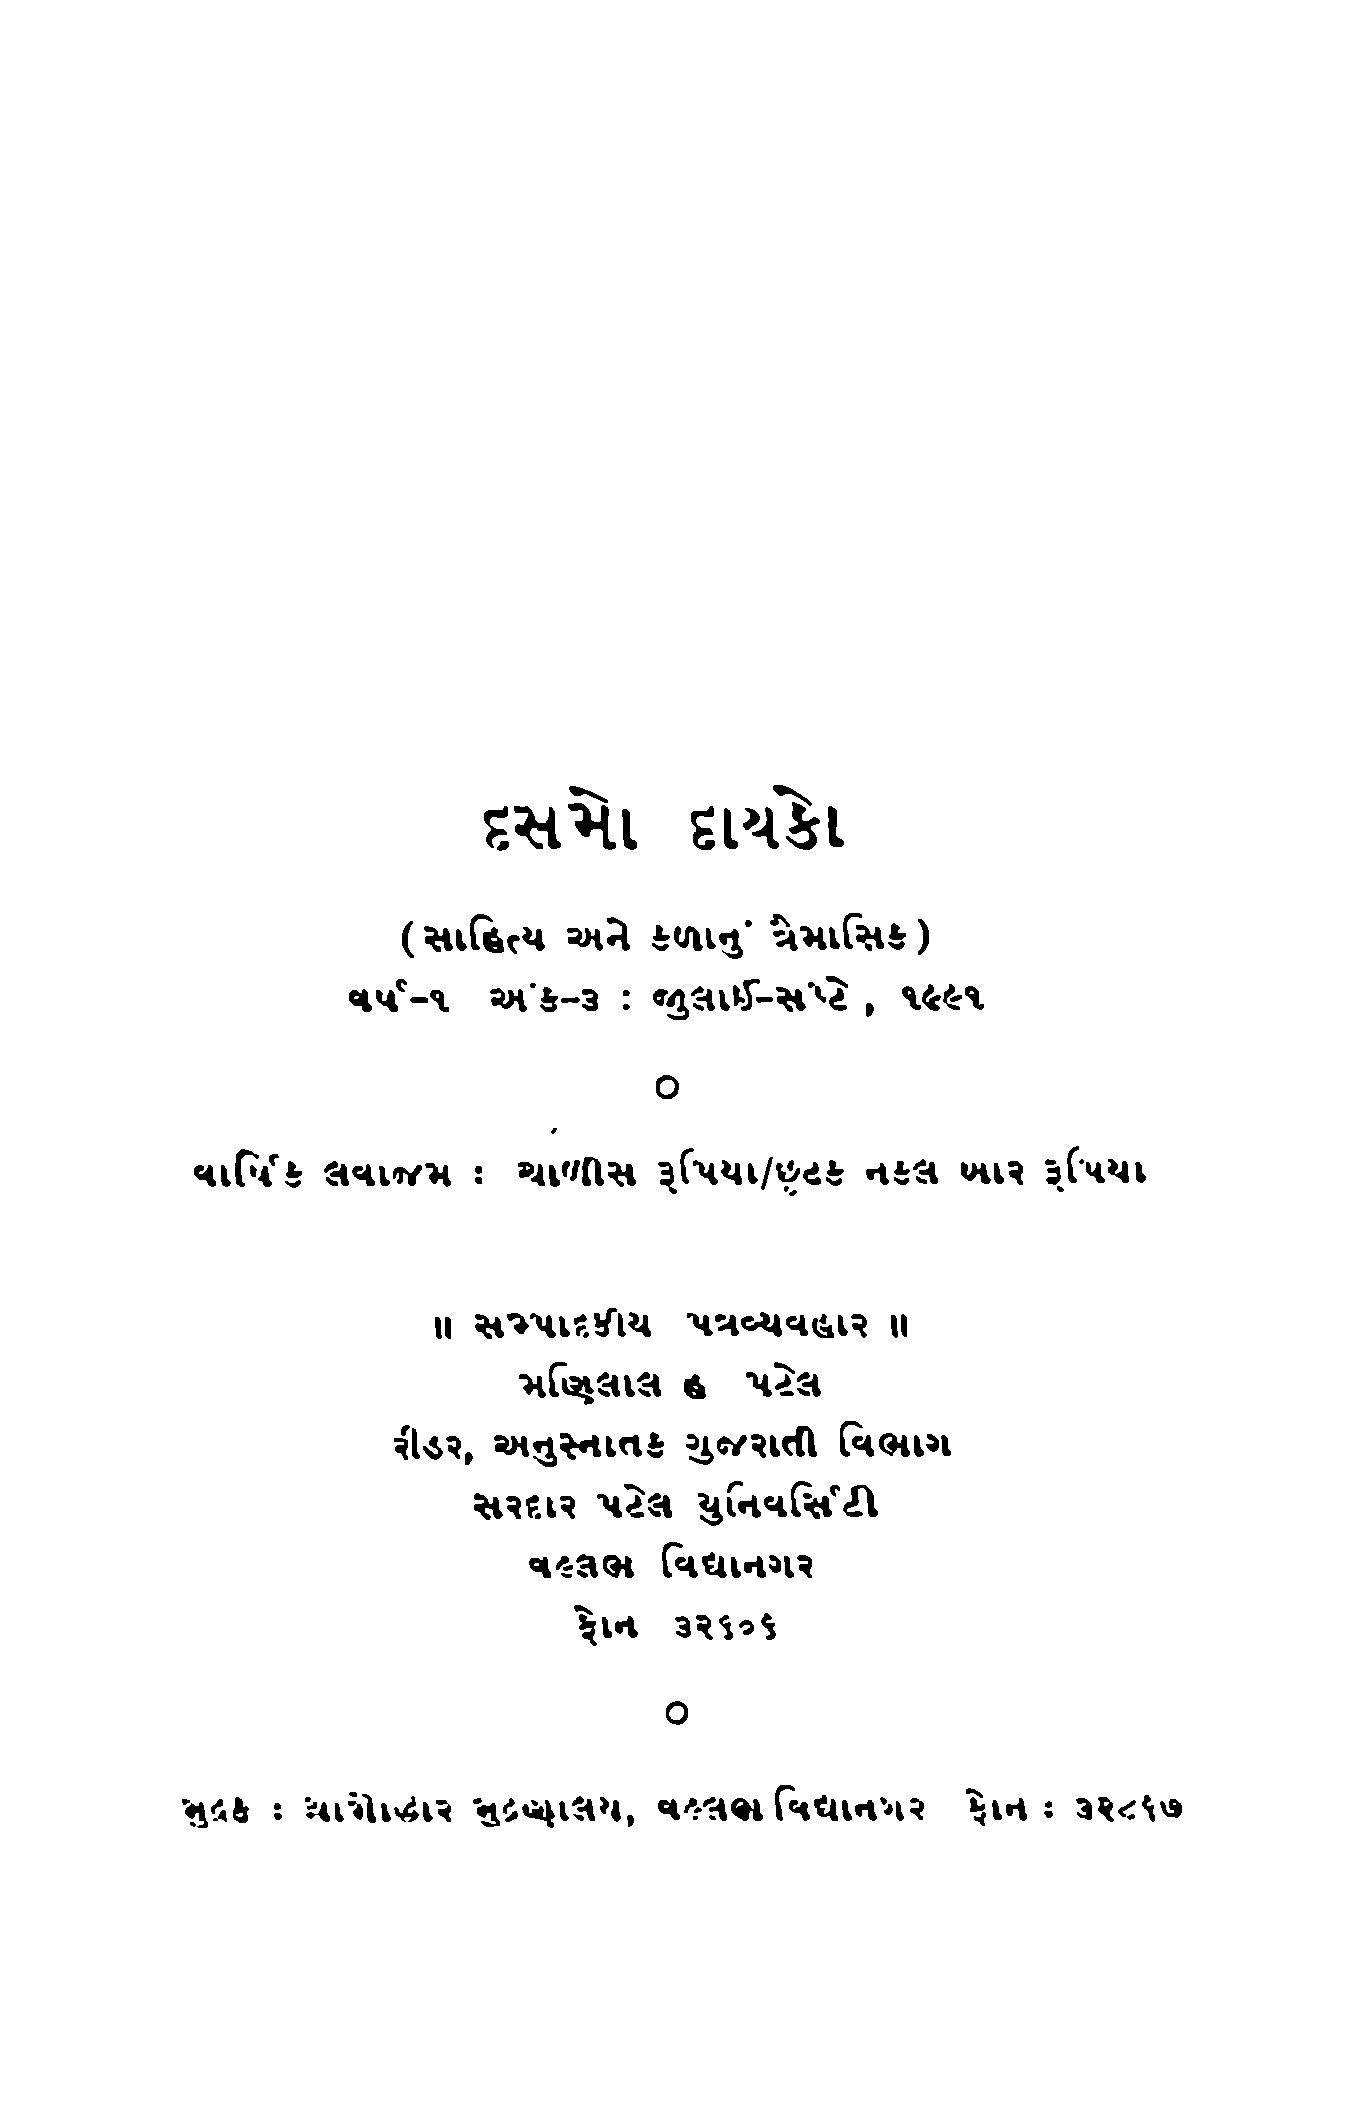 દસમો દાયકો
(સાહિત્ય અને કળાનું ત્રૈમાસિક)
વર્ષ-૧ અંક-૩ : જુલાઈ-સપ્ટે, ૧૯૯૧
વાર્ષિક લવાજમ : ચાળીસ રૂપિયા/છૂટક નકલ બાર રૂપિયા
॥ સમ્પાદકીય પત્રવ્યવહાર ॥
મણિલાલ હ પટેલ
રીડર, અનુસ્નાતક ગુજરાતી વિભાગ
સરદાર પટેલ યુનિવર્સિટી
વલ્લભ વિદ્યાનગર
ફોન ૩૨૬૦૬
મુદ્રક : ગ્રામોદ્ધાર મુદ્રણાલય, વલ્લભ વિદ્યાનગર ફોન : ૩૨૮૬૭